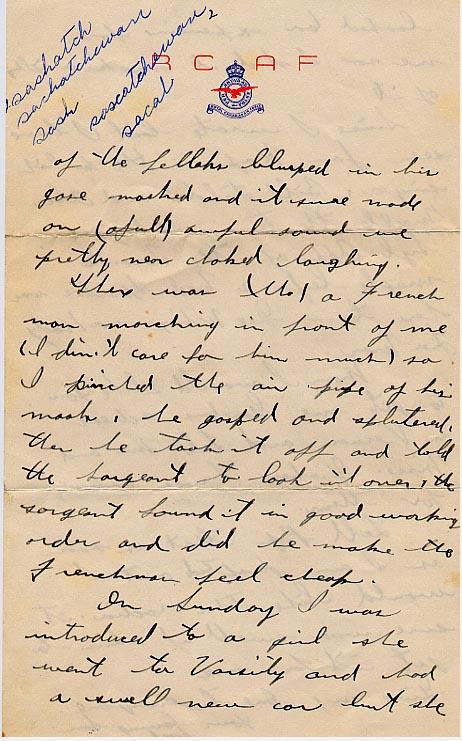 sashatch
sachatchewan
sash
sascatchewan
sacal
2
R C A F
of the fellahs blurped in his
gase masked and it sure made
an (afull) awful sound we
pretty near choked laughing.
There was (the) a French
man marching in front of me
(I din't care for him much) so
I pinched the air pipe of his
mask, he gasped and splutered,
then he took it off and told
the sargeant to look it over, the
sargeant found it in good working
order and did he make the
Frenchman feel cheap.
On Sunday I was
introduced to a girl she
went to Varsity and had
a swell new car but she